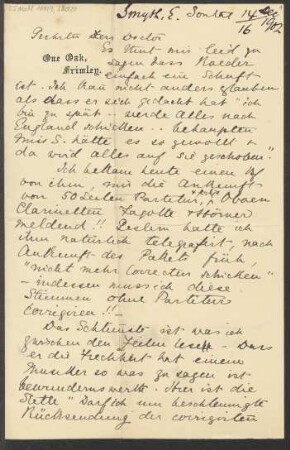 Smyth, E. Sonntag 14 Dez
16 1902
Geehrter Herr Doctor
One Oak,
Frimley.
Es thut mir leid zu
sagen dass Raeder
einfach ein Schuft
ist. Ich kann nicht anders glauben
als dass er sich gedacht hat "ich
bin zu spät – werde Alles nach
England schicken .. behaupten
Miss S. hätte es so gewollt &
da wird alles auf sie geschoben".
Ich bekam heute einen Brf
von ihm, mir die Ankunft
von 50 Seiten Partitur, & Oboen
Clarinetten Fagotte & Hörner
meldend!! Gestern hatte ich
ihm natürlich telegrafirt, nach
Ankunft des Pakets früh,
"nicht mehr Correctur schicken"
– indessen muss ich diese
Stimmen ohne Partitur
corrigiren!! –
Das Schlimmste ist was ich
zwischen den Zeilen lese – Dass
er die Frechheit hat einem
so was zu sagen ist
bewundernswerth. Hier ist die
Stelle "Darf ich um beschleunigte
Rücksendung der corrigirten